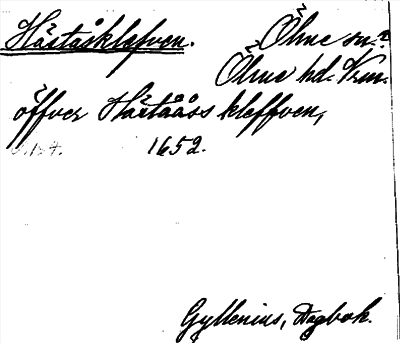 Häståsklefven. Ölme sn.?
Ölme hd. Vrm.
öffver Hästååss kleffven,
s. 134. 1652.
Gyllenius, Dagbok.